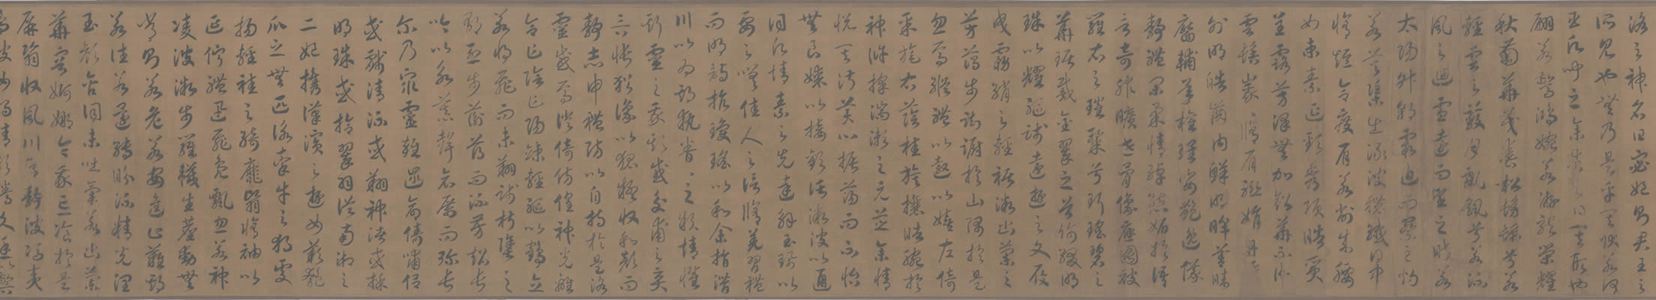 洛之神名曰宓妃則君王之
所見也無乃是乎其狀若何
臣願聞之余告之曰其形也
翩若驚鴻婉若游龍榮曜
秋菊華茂春松髣髴兮若
輕雲之蔽月飄飖兮若流
風之迴雪遠而望之皎若
太陽升朝霞迫而察之灼
若芙蕖出淥波穠纖得中
脩短合度肩若削成腰
如束素延頸秀項皓質
呈露芳澤無加鉛華不御
雲髻峩峩脩眉聯娟丹脣
外朗皓齒內鮮明眸善睞
靨輔承權瓌姿艷逸儀
靜體閑柔情綽態媚於語
言奇服曠世骨像應圖被
羅衣之璀粲兮珥瑤碧之
華琚戴金翠之首飾綴明
珠以耀軀踐遠遊之文履
曳霧綃之輕裾微幽蘭之
芳藹步踟躕於山隅於是
忽焉縱體以遨以嬉左倚
采旄右蔭桂旗攘皓腕於
神滸採湍瀨之玄芝余情
悅其淑美心振蕩而不怡
無良媒以接歡託微波以通
詞願誠素之先達解玉珮以
要之嗟佳人之信脩羌習禮
而明詩抗瓊珶以和余指潛
川以為期執眷眷之款情懼
斯靈之我欺感交甫之棄
言悵猶豫以狐疑收和顏而
靜志申禮防以自持於是洛
靈感焉徙倚彷徨神光離
合乍陰乍陽竦輕軀以鶴立
若將飛而未翔踐椒塗之
郁烈步蘅薄而流芳超長
吟以永慕聲哀厲而彌長
爾乃眾靈雜遝命儔嘯侶
或戲清流或翔神渚或採
明珠或拾翠羽從南湘之
二妃攜漢濱之遊女歎匏
瓜之無匹詠牽牛之獨處
揚輕袿之綺靡翳脩袖以
延佇體迅飛鳧飄忽若神
凌波微步羅襪生塵動無
常則若危若安進止難期
若往若還轉盼流精光潤
玉顏含詞未吐氣若幽蘭
華容婀娜令我忘飡於是
屏翳收風川后靜波馮夷